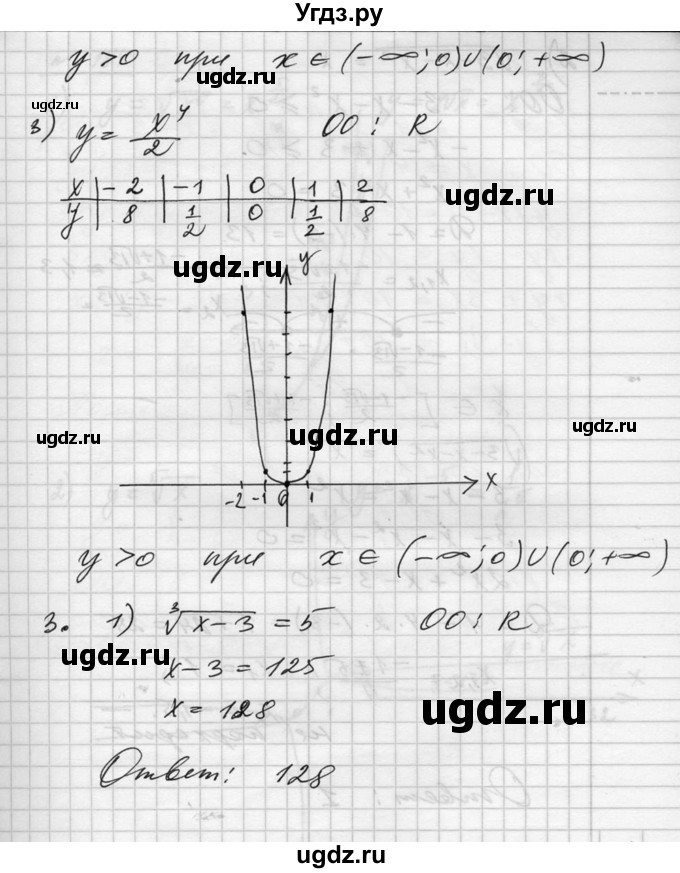 Угдз.ру
y > 0 при x ∈ (-∞; 0) ∪ (0; +∞)
ugdz.ru
ugdz.ru
3) y = x⁴/2 ОО: R
x | -2 | -1 | 0 | 1 | 2
y | 8 | 1/2 | 0 | 1/2 | 8
ugdz.ru
ugdz.ru
y
ugdz.ru
ugdz.ru
ugdz.ru
x
-2 -1 0 1
y > 0 при x ∈ (-∞; 0) ∪ (0; +∞)
3. 1) ∛(x-3) = 5 ОО: R
ugdz.ru
x - 3 = 125
x = 128
ugdz.ru
Ответ: 128
ugdz.ru